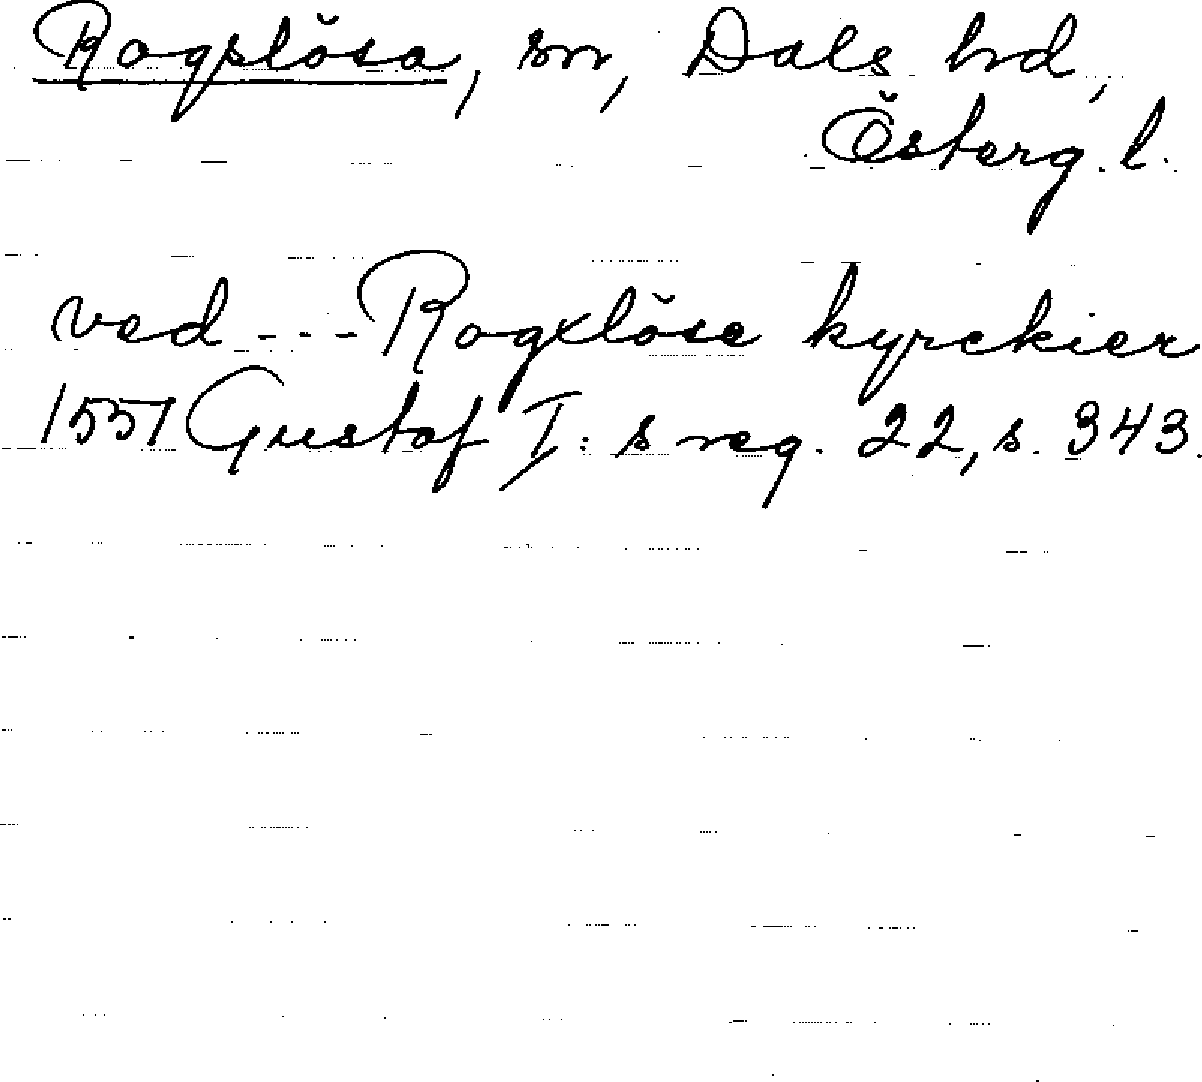 Rogslösa, sn, Dals hd,
Österg. l.
ved - - - Rogxlöse kyrckier
1551 Gustof I: s reg. 22, s. 343.